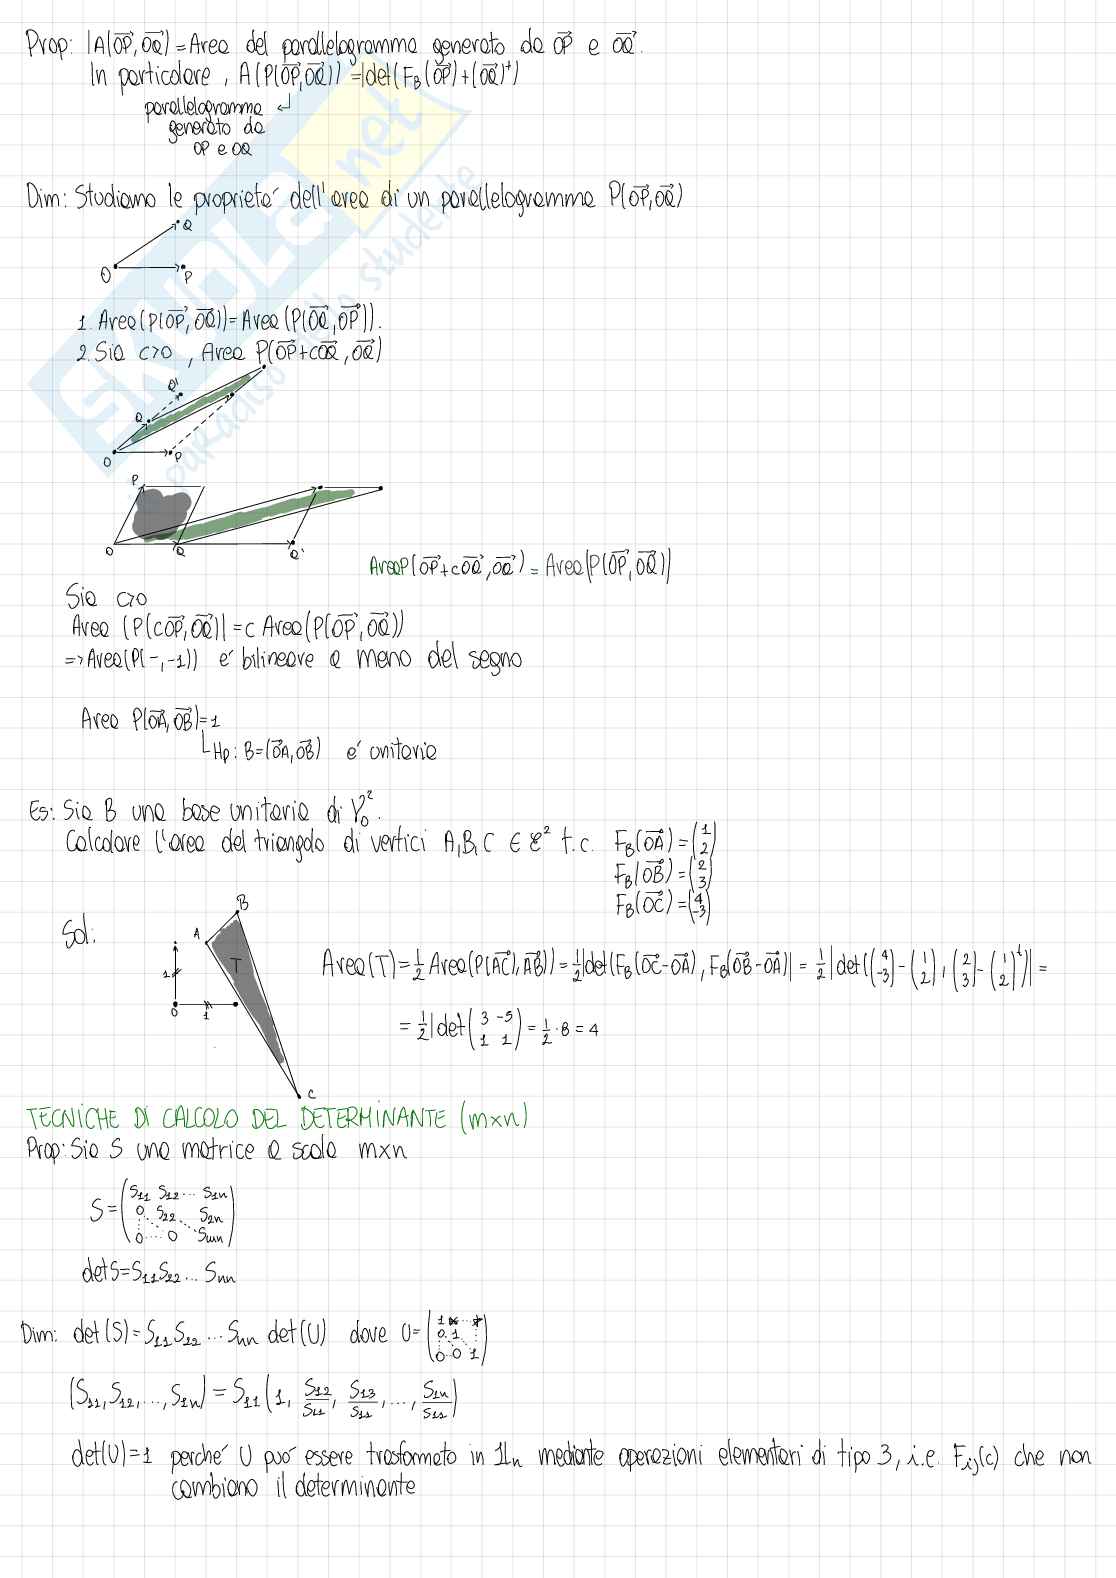 Prop: |A(OP, OQ) = Area del parallelogramma generato da OP e OQ.
In particolare, A(P(OP, OQ)) = |det(F_B(OP) + (OQ)^t)
parallelogramma ↲
generato da
OP e OQ
Dim: Studiamo le proprieta' dell'area di un parallelogramma P(OP, OQ)
Q
O P
1. Area(P(OP, OQ)) = Area(P(OQ, OP)).
2. Sia c>0, Area P(OP+cOQ, OQ)
Q'
Q
O P
P
O Q Q'
AreaP(OP+cOQ, OQ) = Area(P(OP, OQ)|
Sia c>0
Area (P(cOP, OQ)| = c Area(P(OP, OQ))
=> Area(P(-,-1)) e' bilineare a meno del segno
Area P(OA, OB) = 1
Hp: B=(OA, OB) e' unitaria
Es: Sia B una base unitaria di V_0^2.
Calcolare l'area del triangolo di vertici A,B,C ∈ E^2 t.c. F_B(OA) = (1 2)
F_B(OB) = (2 3)
F_B(OC) = (4 -3)
Sol:
B
A
T
1
O 1
C
Area(T) = 1/2 Area(P(AC), AB)) = 1/2 |det(F_B(OC-OA), F_B(OB-OA)| = 1/2 |det((4 -3) - (1 2), (2 3) - (1 2)^t)| =
= 1/2 |det(3 -5 1 1) = 1/2 · 8 = 4
TECNICHE DI CALCOLO DEL DETERMINANTE (mxn)
Prop: Sia S una matrice a scala mxn
S = (S11 S12 ... S1n
0 S22 ... S2n
0 ... 0 Snn)
det S = S11 S22 ... Snn
Dim: det(S) = S11 S22 ... Snn det(U) dove U = (1 * ... *
0 1
0 0 1)
(S11, S12, ..., S1n) = S11 (1, S12/S11, S13/S11, ..., S1n/S11)
det(U)=1 perche' U puo' essere trasformata in 1l_n mediante operazioni elementari di tipo 3, i.e. F_ij(c) che non
cambiano il determinante
SKUOLA.net
paradiso dello studente